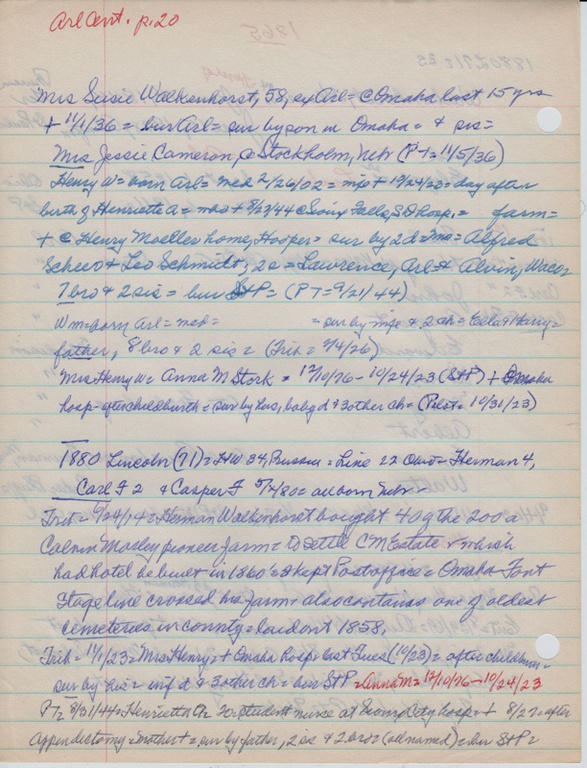 Arl Cent. p. 20
1865
Mrs Susie Walkenhorst, 58, ex Arl = c Omaha last 15 yrs
+ 11/1/36 = bur Arl = sur by son in Omaha = & sis =
Mrs Jessie Cameron, @ Stockholm, Neb (PT = 11/5/36)
Henry W = born Arl = med 2/26/02 = mfs + 10/24/23 = day after
birth of Henrietta A = who + 8/23/44 @ Sioux Falls, SD hosp. = farm =
+ @ Henry Moeller home, Hooper = sur by 2 d = Mrs = Alfred
Scheer & Leo Schmidt, 2 s = Lawrence, Arl & Alvin,
7 bro & 2 sis = bur StP = (PT = 9/21/44)
Wm = born Arl = med = = sur by wife & 2 ch = & Harry =
father, 8 bro & 2 sis = (Trib = 7/4/26)
Mrs Henry W = Anna M Stork = 12/10/76 - 10/24/23 (StP) + Omaha
hosp = after childbirth = sur by hus, baby d & 3 other ch = (Pilot = 10/31/23)
1880 Lincoln (71) = HW 34, Prussia = Line 22 = Herman 4,
Carl F 2 & Casper F 5/12/80 = all born Neb
Trib = 9/24/14 = Herman Walkenhorst bought 40 of the 200 a
Calvin Mosley pioneer farm = to settle CM Estate = which
had hotel he built in 1860's & kept Postoffice = Omaha - Font
Stage line crossed his farm = also contains one of oldest
cemeteries in county = laid out 1858.
Trib = 11/1/23 = Mrs Henry = + Omaha hosp last Tues (10/23) = after childbirth =
sur by hus = inf d & 3 other ch = bur StP = Anna M = 12/10/76 - 10/24/23
PT = 8/31/44 = Henrietta student nurse at City hosp = + 8/27 = after
appendectomy = mother + = sur by father, 2 sis & 2 bro = (all named) = bur StP =